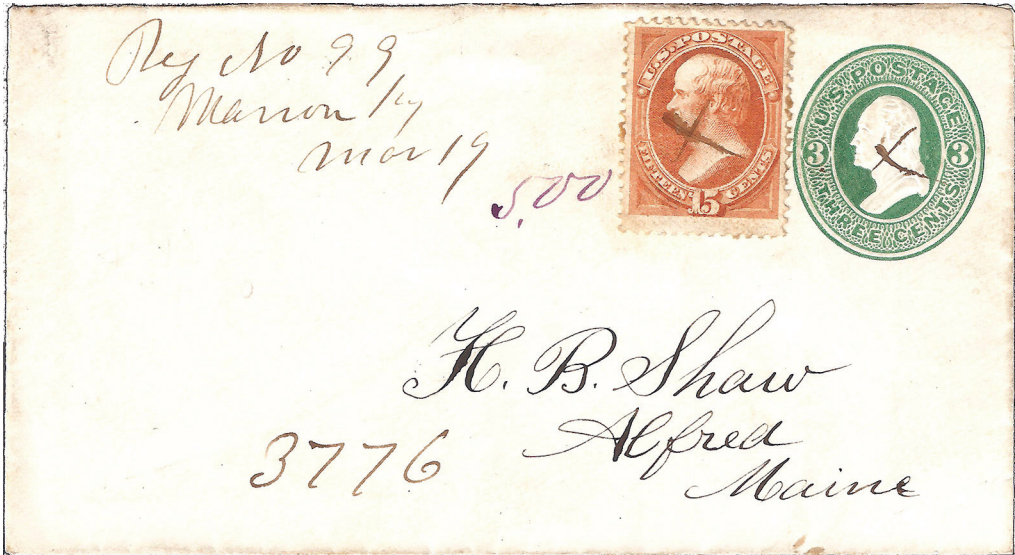 Reg No 99
Marion Ky
Mar 19
5.00
U.S. POSTAGE
FIFTEEN 15 CENTS
U.S. POSTAGE
3 3
THREE CENTS
H. B. Shaw
Alfred
Maine
3776